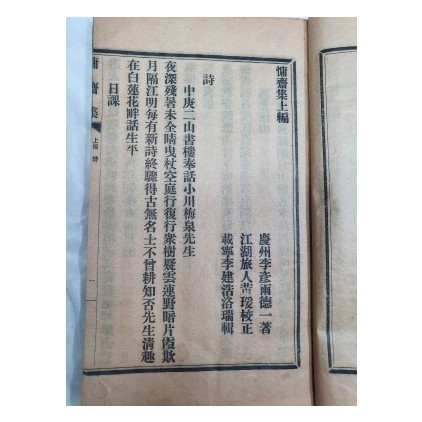 慵齋集上編
慶州李彥雨德一著
江湖旅人 瑗校正
載寧李建浩洛瑞輯
詩
中庚二山書樓奉話小川梅泉先生
夜深殘暑未全晴曳杖空庭行復行衆樹疑雲連野暗片霞欺
月隔江明每有新詩終驟得古無名士不曾耕知否先生淸趣
在白蓮花畔話生平
日課
慵齋集
上編 詩
一